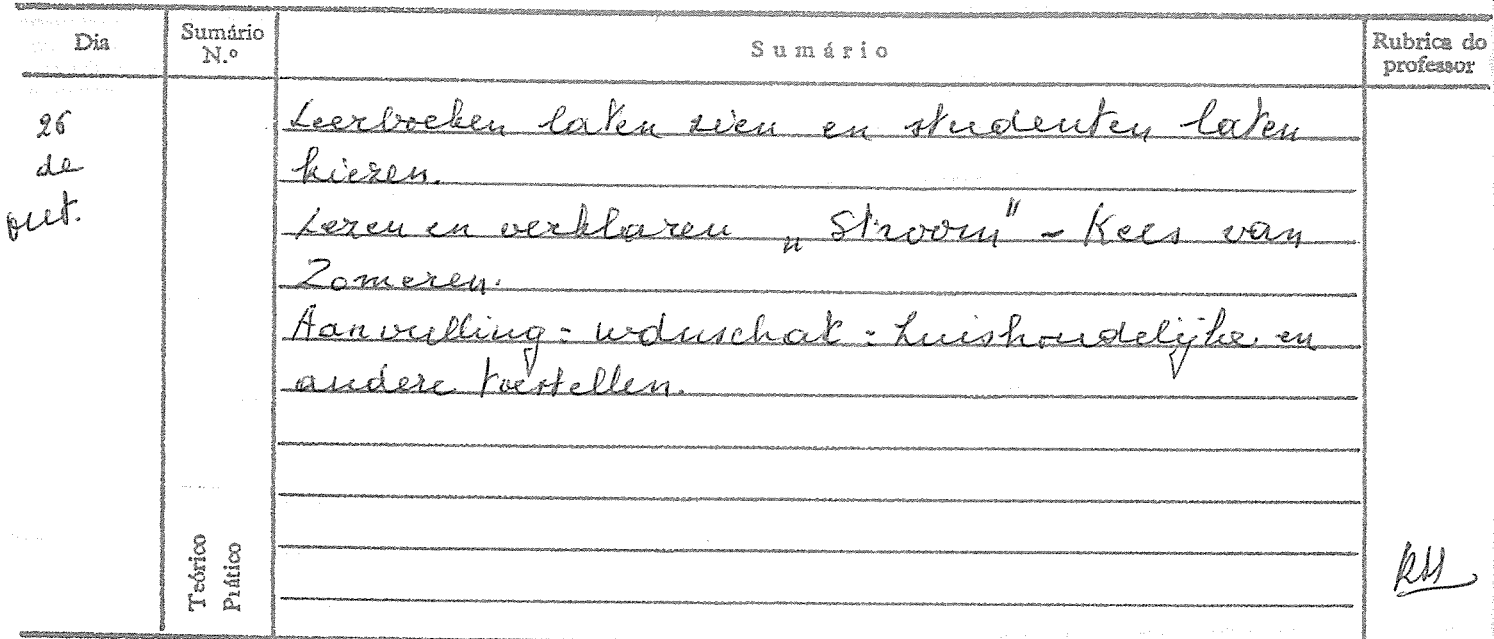 Dia Sumário N.º Sumário Rubrica do professor
26 de out.
Leerboeken laten zien en studenten laten
kiezen.
Lezen en verklaren „Stroom" - Kees van
Zomeren.
Aanvulling: wdnschat: huishoudelijke en
andere toestellen.
Teórico
Prático
RH